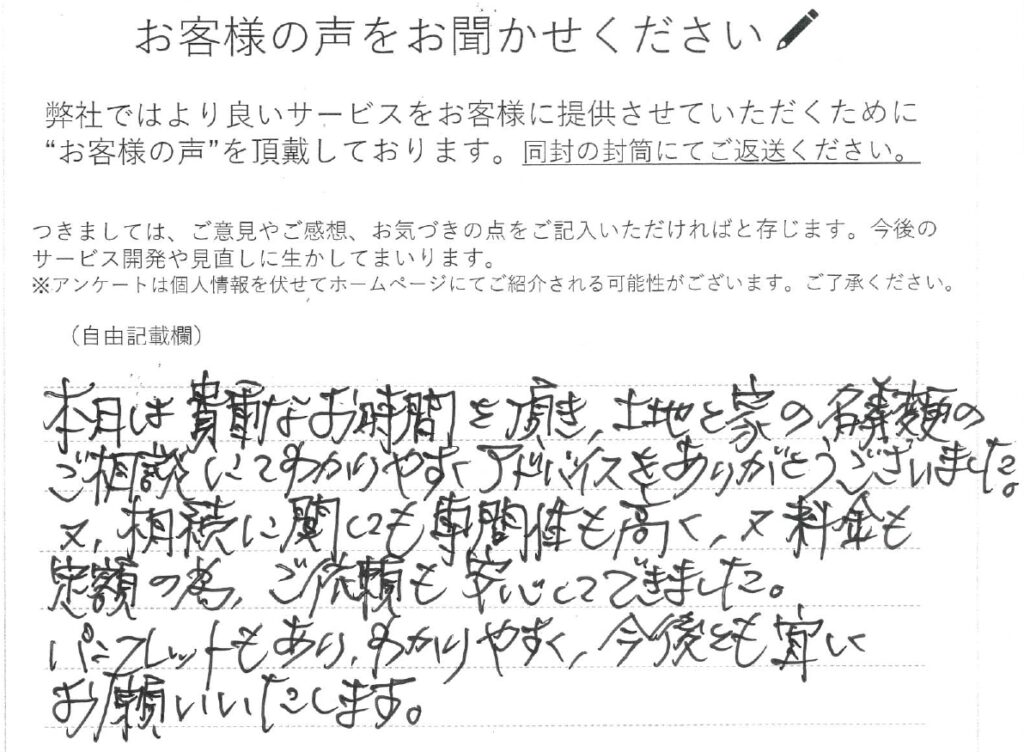 お客様の声をお聞かせください
弊社ではより良いサービスをお客様に提供させていただくために
“お客様の声”を頂戴しております。同封の封筒にてご返送ください。
つきましては、ご意見やご感想、お気づきの点をご記入いただければと存じます。今後の
サービス開発や見直しに生かしてまいります。
※アンケートは個人情報を伏せてホームページにてご紹介される可能性がございます。ご了承ください。
（自由記載欄）
本日は貴重なお時間を頂き、土地と家の名義類の
ご相談にてわかりやすくアドバイスをありがとうございました。
又、相続に関しても専門性も高く、又料金も
定額の為、ご依頼も安心してできました。
パンフレットもあり、わかりやすく、今後とも宜しく
お願いいたします。